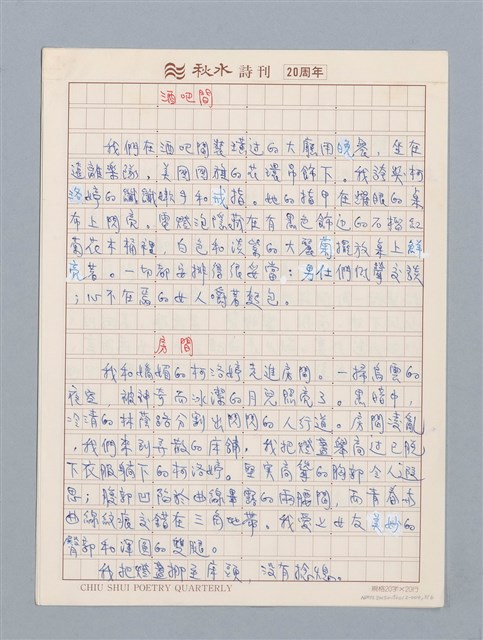 秋水 詩刊 20周年
酒吧間
我們在酒吧間裝璜过的大廳用晚餐,坐在
遠離樂隊,美國國旗的花邊吊飾下。我誇獎柯
洛婷的纖纖嫩手和戒指。她的指甲在耀眼的桌
布上閃亮。電燈泡隱藏在有黑色飾边的石榴紅
菊花木桶裡,白色和淡紫的大麗菊擺放桌上鮮
亮著。一切都安排得很妥當:男仕們低聲交談
;心不在焉的女人嚼著起包。
房間
我和嬌媚的柯洛婷走進房間。一掃烏雲的
夜空,被神奇而冰潔的月兒照亮了。黑暗中,
冷清的林蔭路分割出閃閃的人行道。房間凌亂
,我們來到弄散的床舖。我把燈盞舉高过已脫
下衣服躺下的柯洛婷。堅實高聳的胸部令人遐
思;腹部凹陷於曲線畢露的兩腰間,而青春的
曲線紋痕交錯在三角地帶。我愛上女友美妙的
臀部和渾圓的雙腿。
我把燈盞挪至床頭,沒有捻熄。
CHIU SHUI POETRY QUARTERLY
稿紙20字×20行